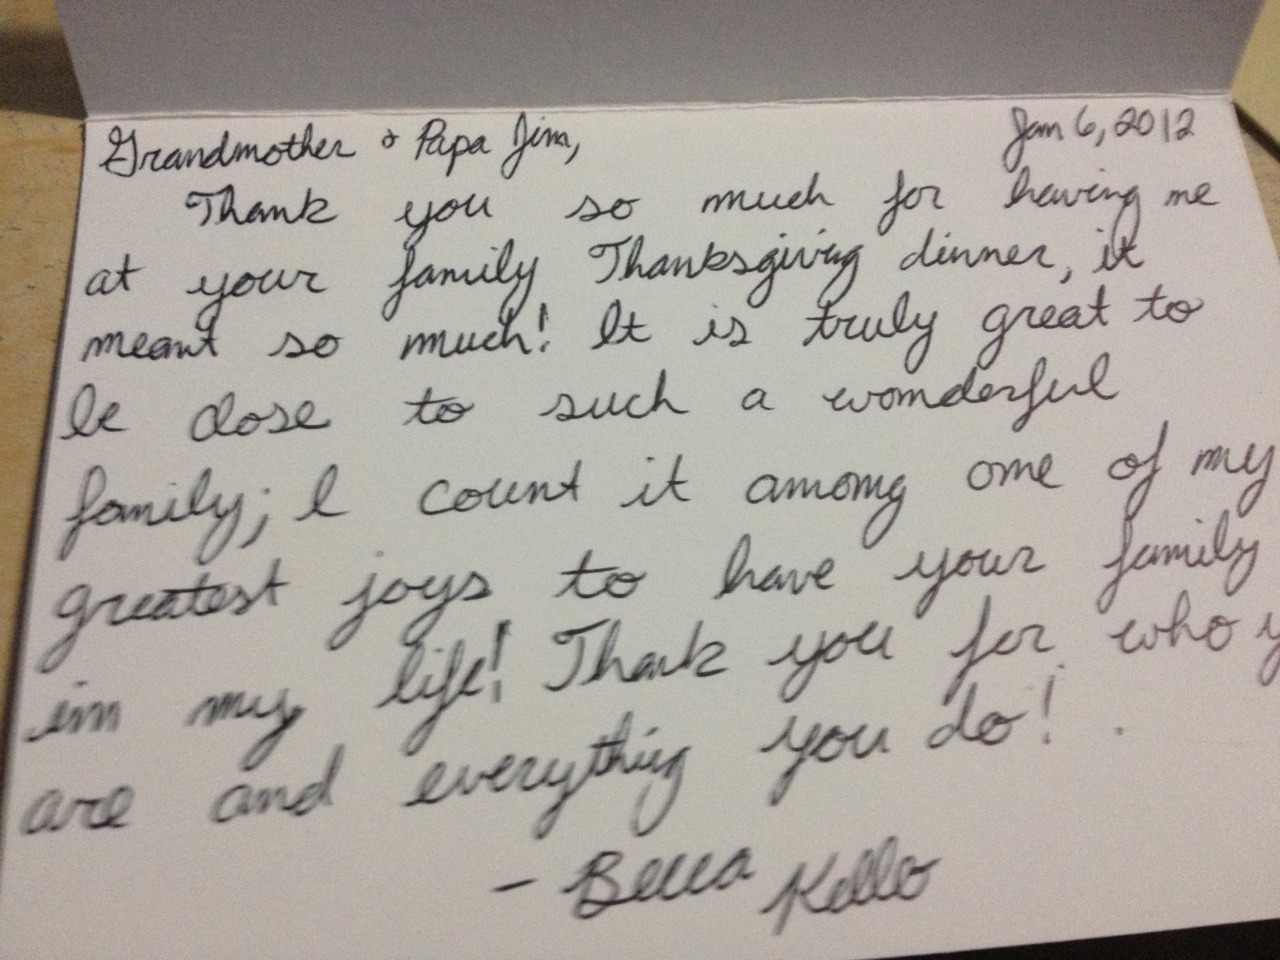 Grandmother & Papa Jim,
Jan 6, 2012
Thank you so much for having me
at your family Thanksgiving dinner, it
meant so much! It is truly great to
be close to such a wonderful
family; I count it among one of my
greatest joys to have your family
in my life! Thank you for who y
are and everything you do!
- Becca Kello